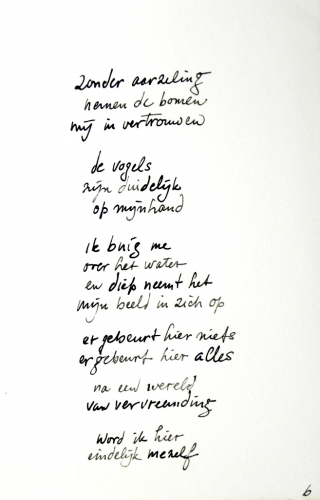 zonder aarzeling
nemen de bomen
mij in vertrouwen
de vogels
zijn duidelijk
op mijn hand
ik buig me
over het water
en diep neemt het
mijn beeld in zich op
er gebeurt hier niets
er gebeurt hier alles
na een wereld
van vervreemding
word ik hier
eindelijk mezelf
6